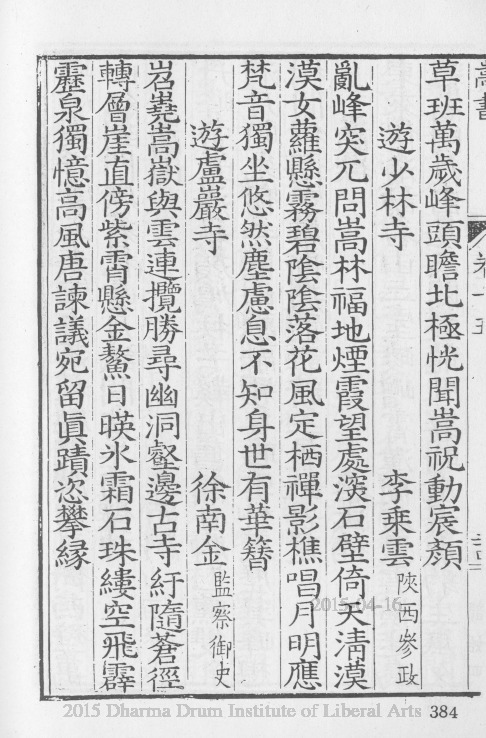 嵩書
卷十五
草班萬歲峰頭瞻北極恍聞嵩祝動宸顏
遊少林寺 李乘雲 陝西參政
亂峰突兀問嵩林福地煙霞望處深石壁倚天清漠
漠女蘿懸霧碧陰陰落花風定栖禪影樵唱月明應
梵音獨坐悠然塵慮息不知身世有華簪
遊盧巖寺 徐南金 監察御史
岩嶤嵩嶽與雲連攬勝尋幽洞壑邊古寺紆隨蒼徑
轉層崖直傍紫霄懸金鰲日暎氷霜石珠縷空飛霹
靂泉獨憶高風唐諫議宛留眞蹟恣攀緣
2015-04-16
2015 Dharma Drum Institute of Liberal Arts 384